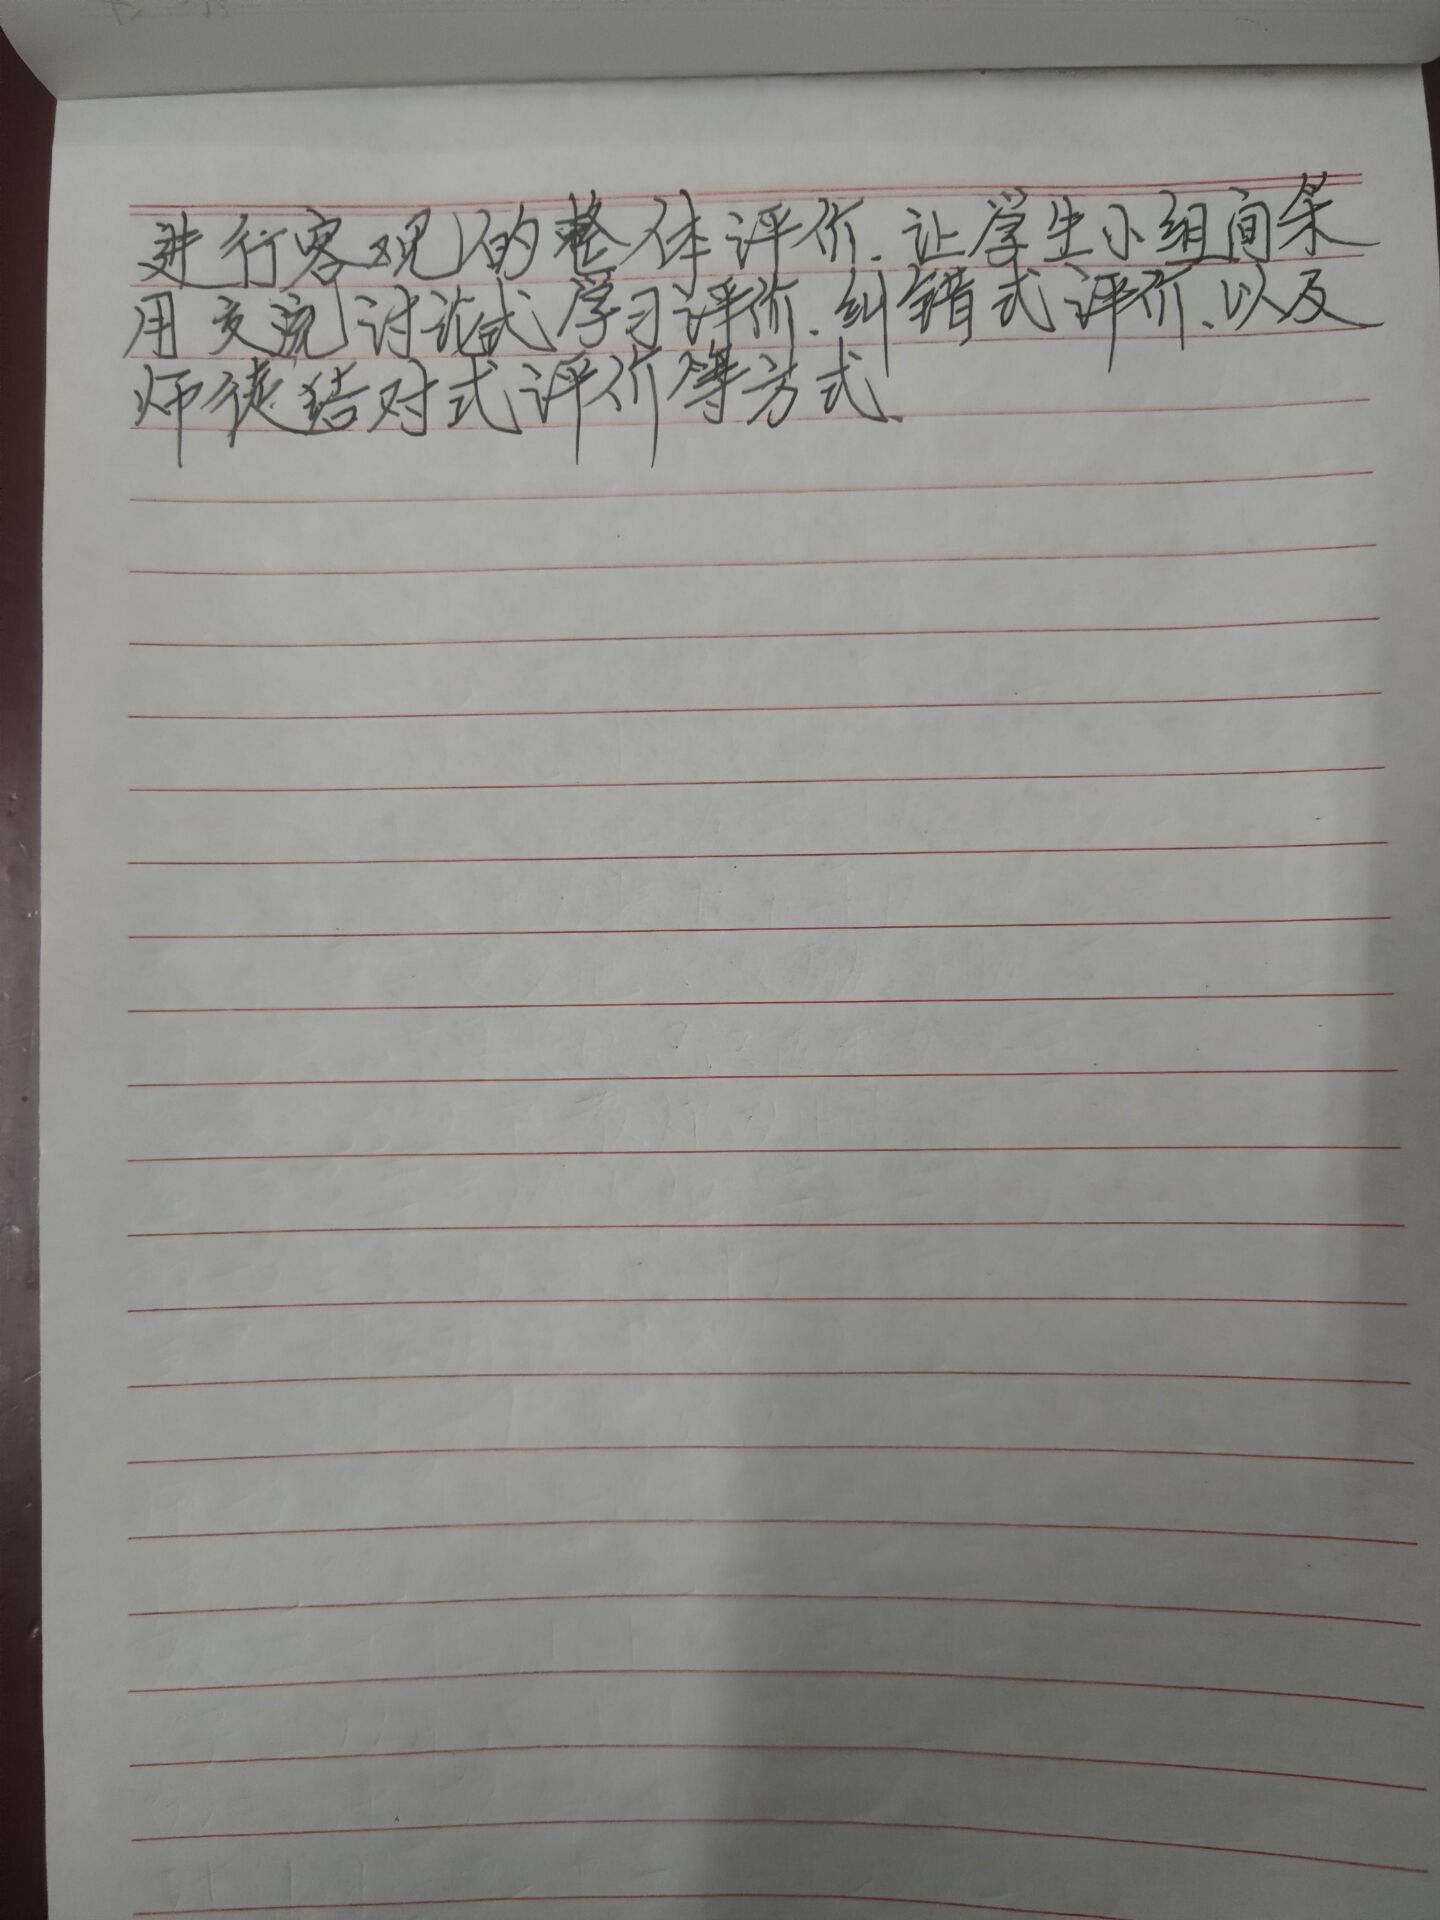 进行客观的整体评价.让学生小组间采
用交流讨论式学习评价.纠错式评价、以及
师徒结对式评价等方式.